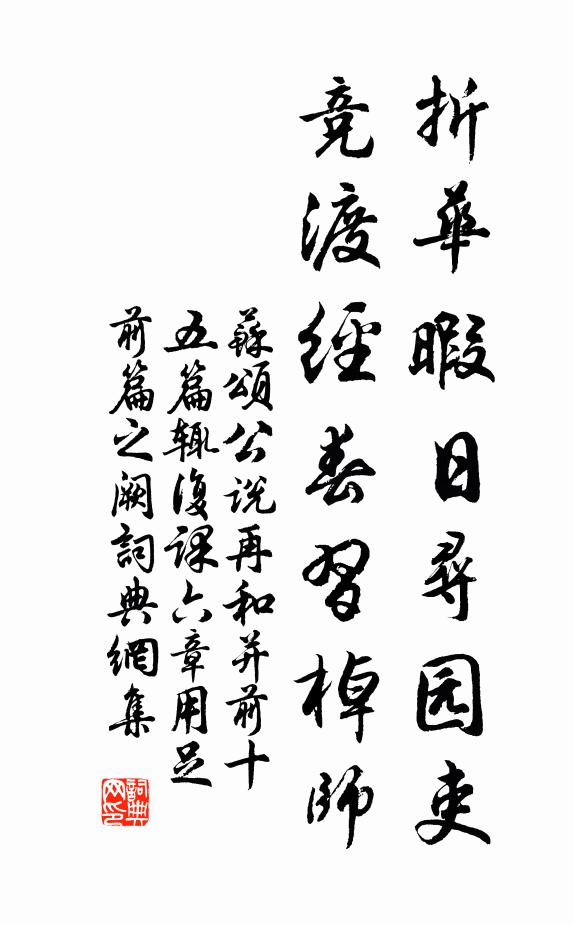 折華暇日尋园吏
競渡經春習棹師
蘇頌公説再和并前十
五篇輒復課六章用足
前篇之闕詞典網集
詞典
网印